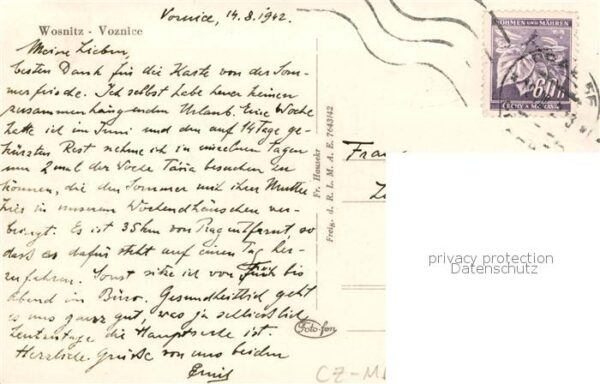 Voznice, 14.8.1942.
Wosnitz - Voznice
Meine Lieben,
besten Dank für die Karte von der Som-
merfrische. Ich selbst habe heuer keinen
zusammenhängenden Urlaub. Eine Woche
hatte ich im Juni und den auf 14 Tage ge-
kürzten Rest nehme ich in einzelnen Tagen
um 2 mal der Woche Táňa besuchen zu
können, die den Sommer mit ihrer Mutter
hier in unserem Wochendhäuschen ver-
bringt. Es ist 35 km von Prag entfernt, so
daß es dafür steht auf einen Tag her-
zufahren. Sonst sitze ich von Früh bis
abend im Büro. Gesundheitlich geht
es uns ganz gut, was ja schliesslich
heutzutage die Hauptsache ist.
Herzliche Grüsse von uns beiden
Emil
Fr. Housekr
Freig. d. R. L. M. A. E. 7643/42
Foto-fon
BÖHMEN UND MÄHREN
60
ČECHY A MORAVA
Fra
privacy protection
Datenschutz
CZ-M